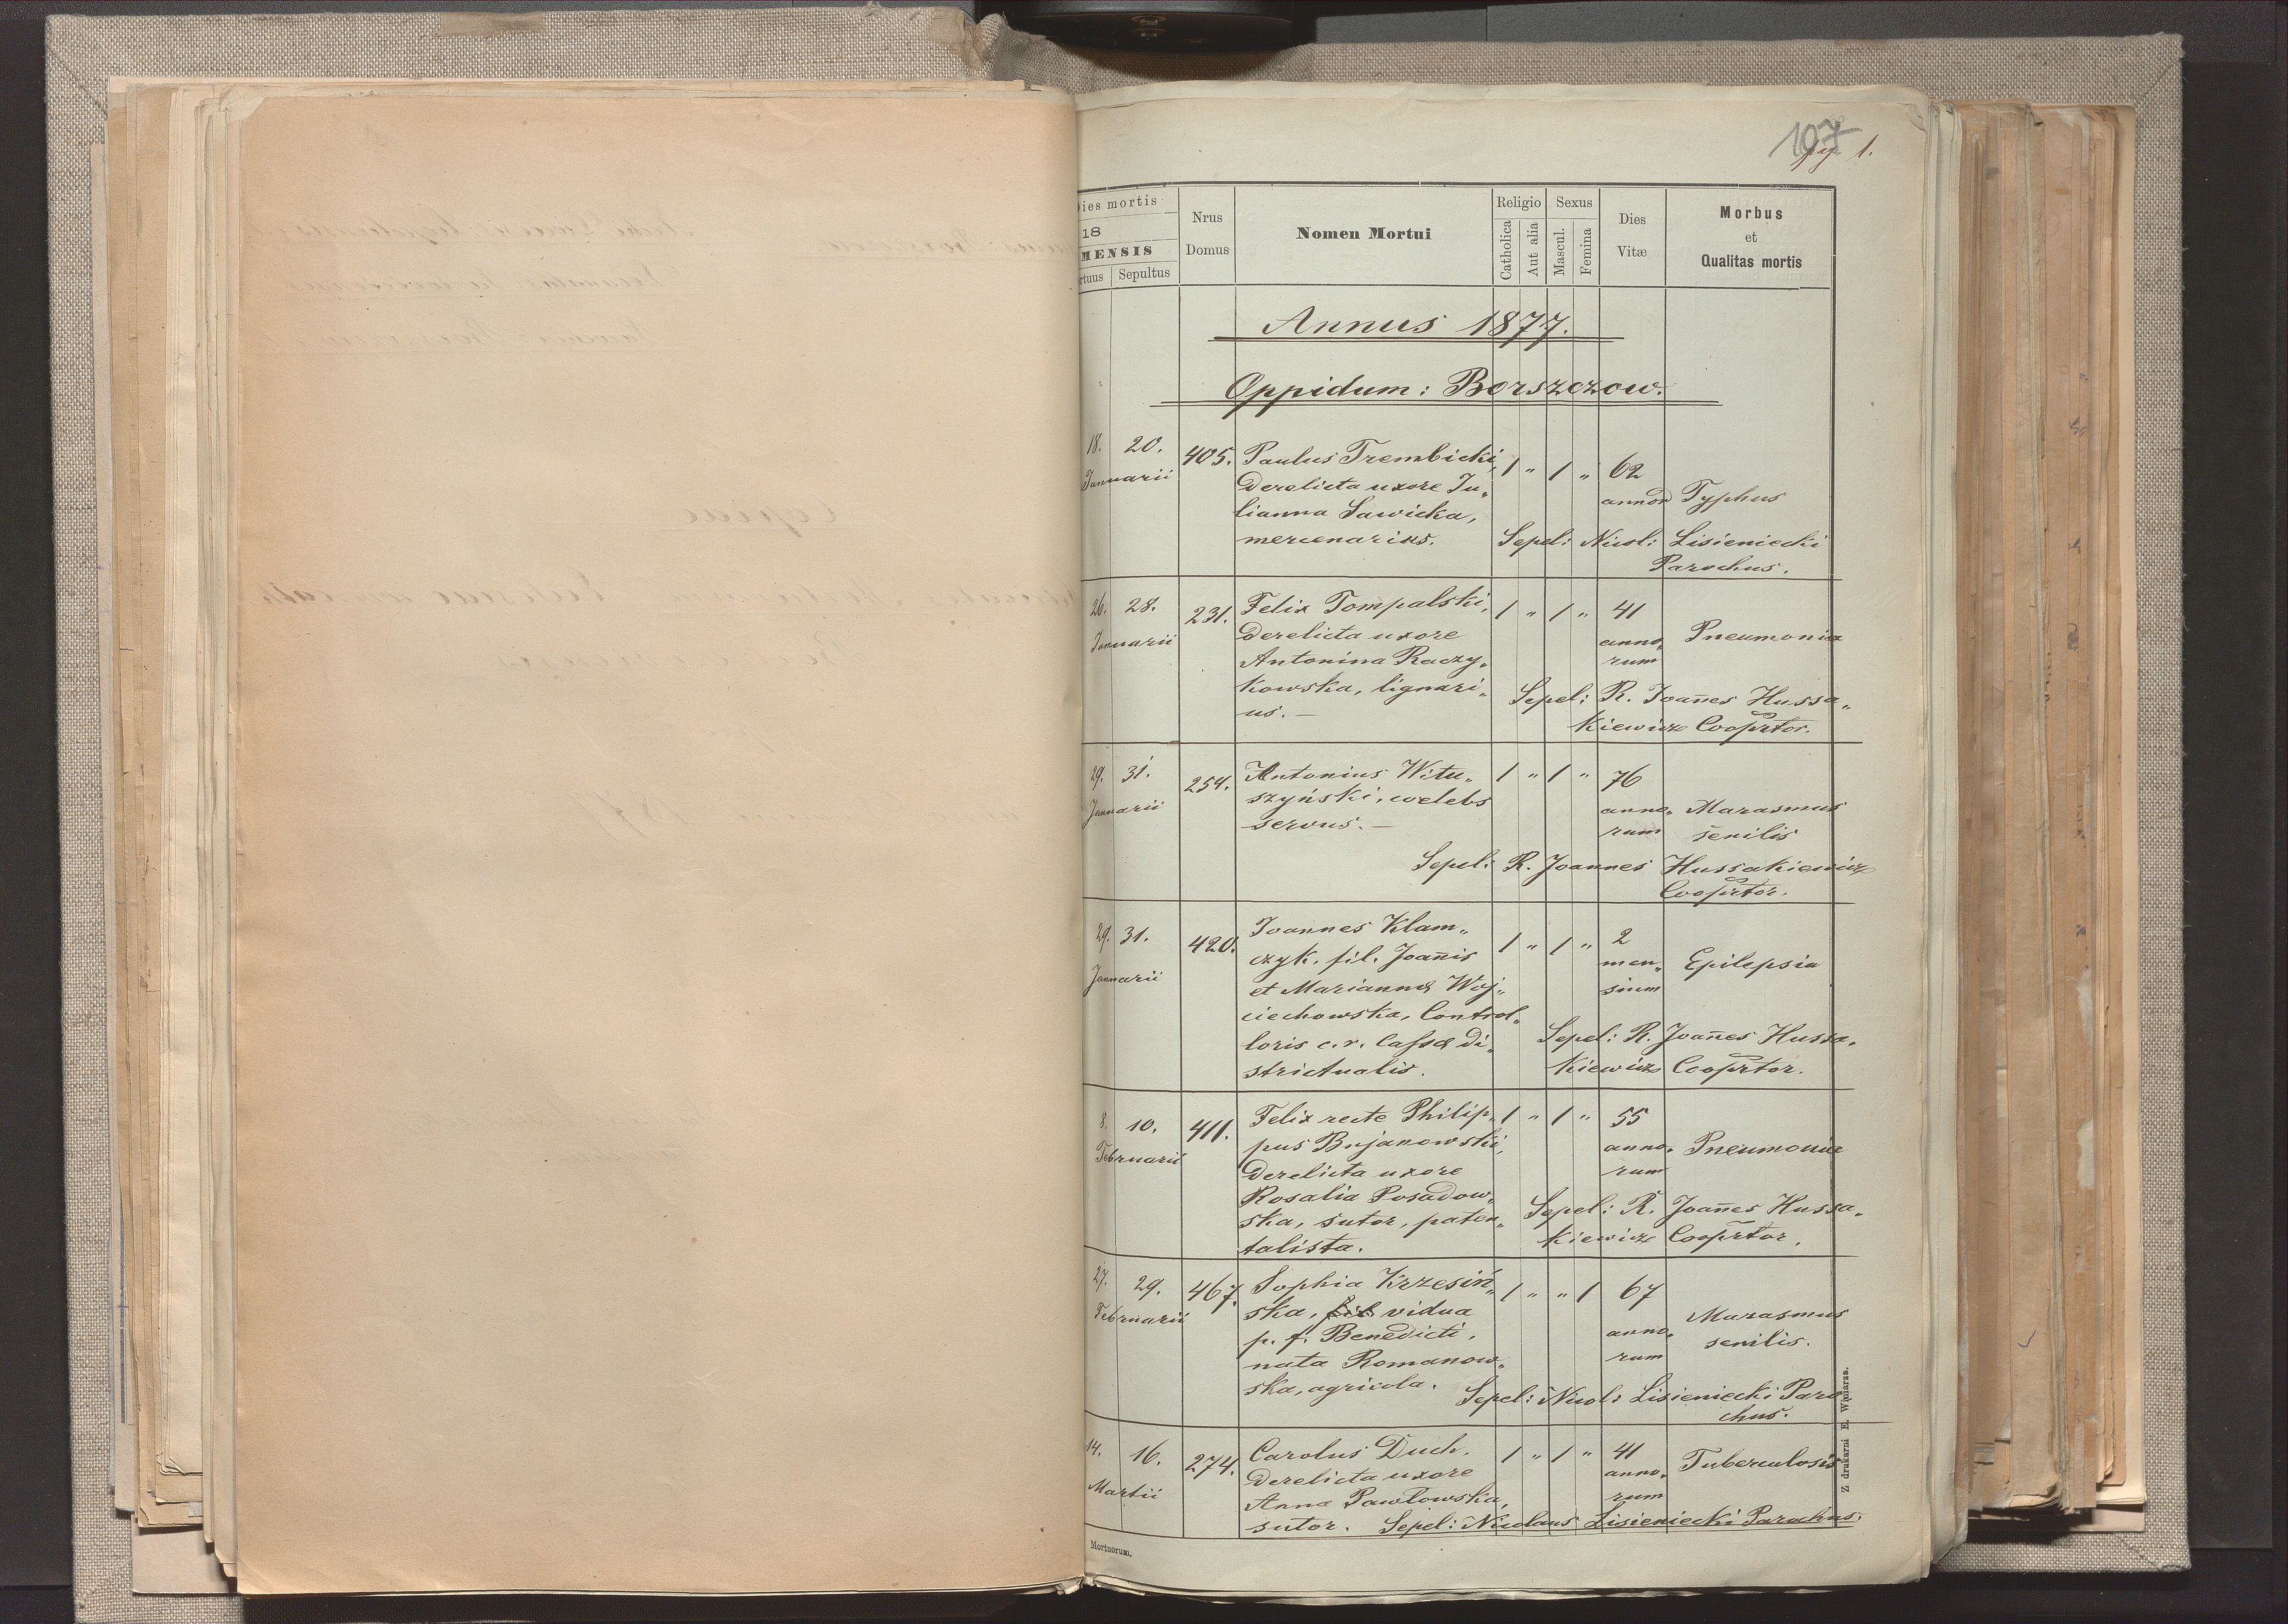 107
pag. 1.
Dies mortis
18
MENSIS
Sepultus
Nrus
Domus
Nomen Mortui
Religio
Catholica
Aut alia
Sexus
Mascul.
Femina
Dies
Vitæ
Morbus
et
Qualitas mortis
Annus 1877.
Oppidum: Borszczow.
18. 20.
Januarii
405.
Paulus Trembicki,
derelicta uxore Ju„
lianna Sawicka,
mercenarius.
1 „ 1 „
62
annor
Typhus
Sepel: Nicol: Lisieniecki
Parochus.
26. 28.
Januarii
231.
Felix Tompalski,
derelicta uxore
Antonina Raczy„
kowska, lignari„
us. —
1 „ 1 „
41
anno„
rum
Pneumonia
Sepel: R. Joañes Hussa„
kiewicz Cooprtor.
29. 31.
Januarii
254.
Antonius Witu„
szyński, coelebs
servus. —
1 „ 1 „
76
anno„
rum
Marasmus
senilis
Sepel: R. Joannes Hussakiewicz
Cooprtor.
29. 31.
Januarii
420.
Joannes Klam„
czyk, fil. Joañis
et Mariannæ Woj„
ciechowska, Control„
loris c. r. Cassæ di„
strictualis.
1 „ 1 „
2
men„
sium
Epilepsia
Sepel: R. Joañes Hussa„
kiewicz Cooprtor.
8. 10.
Februarii
411.
Felix recte Philip„
pus Bujanowski,
derelicta uxore
Rosalia Posadow„
ska, sutor, paten„
talista.
1 „ 1 „
55
anno„
rum
Pneumonia
Sepel: R. Joañes Hussa„
kiewicz Cooprtor.
27. 29.
Februarii
467.
Sophia Krzesiń„
ska, fil vidua
p. f. Benedicti,
nata Romanow„
ska, agricola.
1 „ „ 1
67
anno„
rum
Marasmus
senilis.
Sepel: Nicol: Lisieniecki Paro
chus.
14. 16.
Martii
274.
Carolus Duch.
derelicta uxore
Anna Pawłowska,
sutor.
1 „ 1 „
41
anno„
rum
Tuberculosis
Sepel: Nicolaus Lisieniecki Parochus.
Mortuorum.
Z drukarni E. Winiarza.